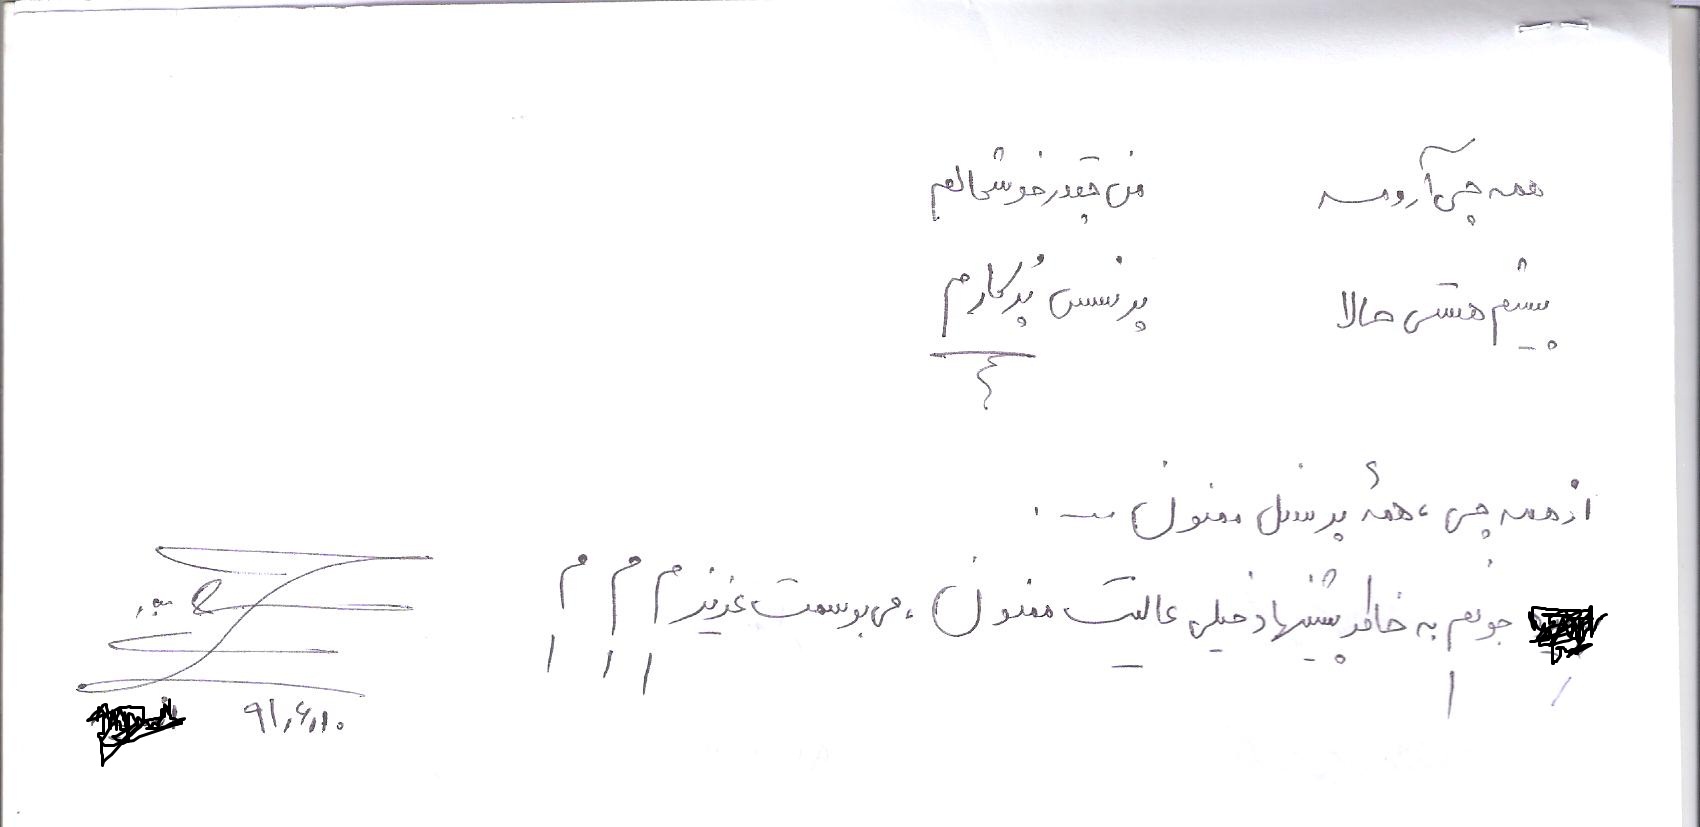 همه چی آرومه    من چقدر خوشحالم
پیشم هستی حالا    پرنسس پُرکارم
۴
از همه چی، همهٔ پرسنل ممنون ....
جونم به خاطر پیشنهاد خیلی عالیت ممنون، می‌بوسمت عزیزم م م
۹۱٫۶٫۱۰